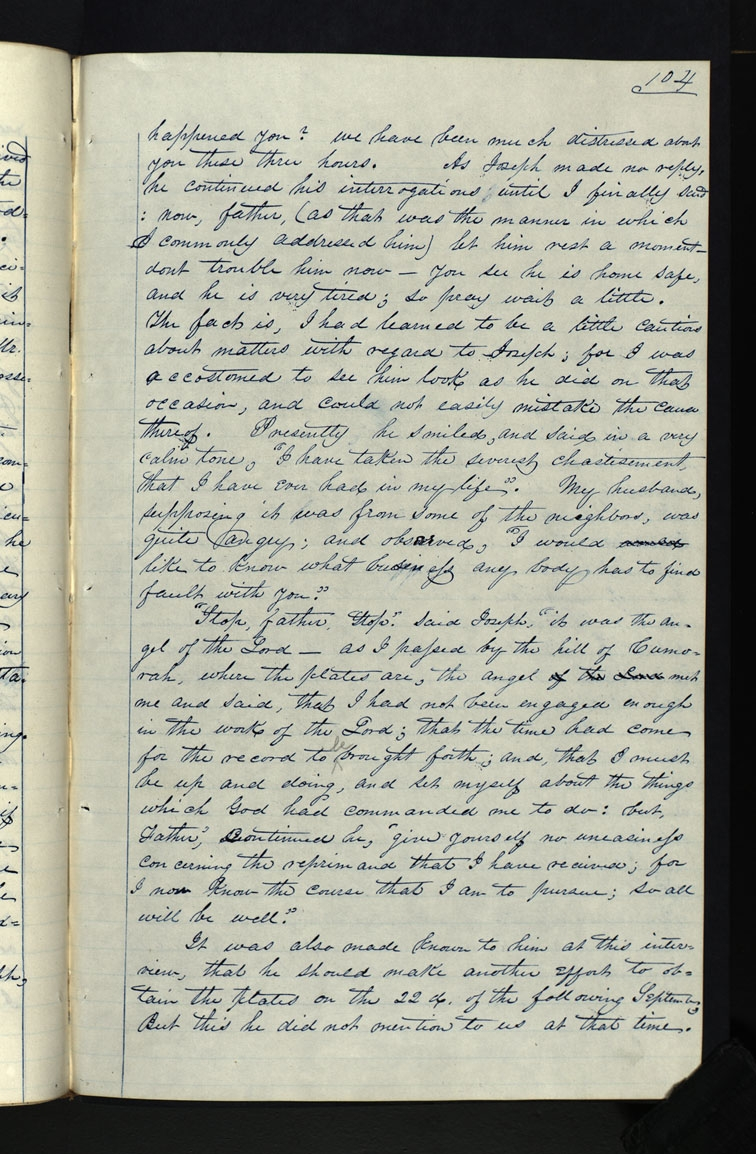 104
happened you? we have been much distressed about
you these three hours. As Joseph made no reply,
he continued his interrogations until I finally said
: now, father, (as that was the manner in which
I commonly addressed him) let him rest a moment—
dont trouble him now — you see he is home safe,
and he is very tired; so pray wait a little.
The fact is, I had learned to be a little cautious
about matters with regard to Joseph; for I was
accostomed to see him look as he did on that
occasion, and could not easily mistake the cause
thereof. Presently he smiled, and said in a very
calm tone, "I have taken the severest chastisement,
that I have ever had in my life". My husband,
supposing it was from some of the neighbors, was
quite angry; and observed, "I would
like to know what business any body has to find
fault with you?"
"Stop, father, Stop." said Joseph, "it was the an-
gel of the Lord — as I passed by the hill of Cumo-
rah, where the plates are, the angel of the Lord met
me and said, that I had not been engaged enough
in the work of the Lord; that the time had come
for the record to be brought forth; and, that I must
be up and doing, and set myself about the things
which God had commanded me to do: but,
Father", continued he, "give yourself no uneasiness
concerning the reprimand that I have received; for
I now know the course that I am to pursue; so all
will be well."
It was also made known to him at this inter=
view, that he should make another effort to ob=
tain the plates on the 22 d. of the following September,
But this he did not mention to us at that time.